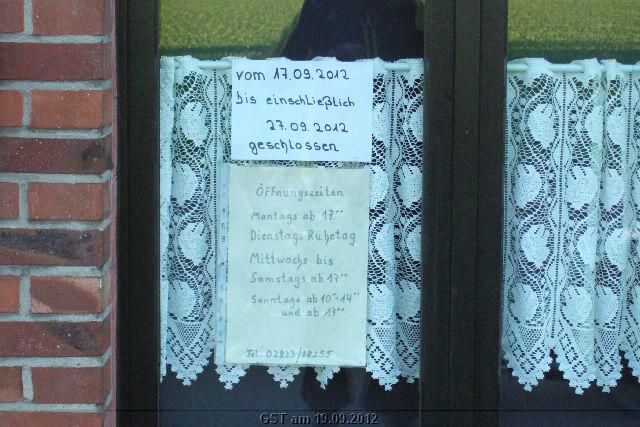 vom 17.09.2012
bis einschließlich
27.09.2012
geschlossen
Öffnungszeiten
Montags ab 17°°
Dienstags Ruhetag
Mittwochs bis
Samstags ab 17°°
Sonntags ab 10°°-14°°
und ab 17°°
Tel. 02823/
GST am 19.09.2012